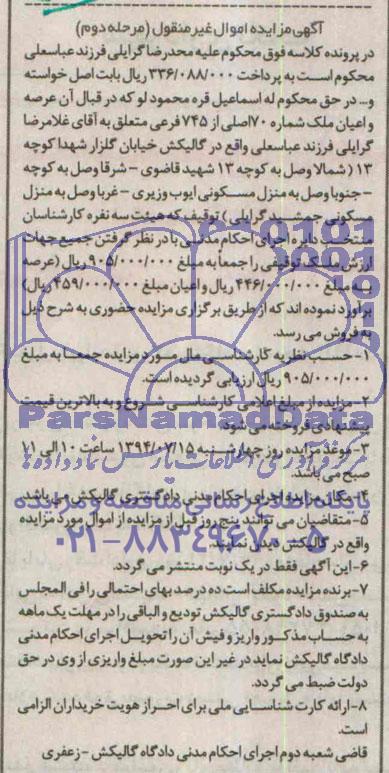 آگهی مزایده اموال غیر منقول (مرحله دوم)
در پرونده کلاسه فوق محکوم علیه محدرضا گرایلی فرزند عباسعلی
محکوم است به پرداخت ۳۳۶/۰۸۸/۰۰۰ ریال بابت اصل خواسته
و... در حق محکوم له اسماعیل قره محمود لو که در قبال آن عرصه
و اعیان ملک شماره ۷۰اصلی از ۷۴۵ فرعی متعلق به آقای غلامرضا
گرایلی فرزند عباسعلی واقع در گالیکش خیابان گلزار شهدا کوچه
۱۳ (شمالا وصل به کوچه ۱۳ شهید قاضوی – شرقا وصل به کوچه
– جنوبا وصل به منزل مسکونی ایوب وزیری – غربا وصل به منزل
مسکونی جمشید گرایلی) توقیف که هیئت سه نفره کارشناسان
منتخب دایره اجرای احکام مدنی با در نظر گرفتن جمیع جهات
ارزش ملک توقیفی را جمعا به مبلغ ۹۰۵/۰۰۰/۰۰۰ ریال (عرصه
به مبلغ ۴۴۶/۰۰۰/۰۰۰ ریال و اعیان مبلغ ۴۵۹/۰۰۰/۰۰۰ ریال)
برآورد نموده اند که از طریق برگزاری مزایده حضوری به شرح ذیل
به فروش می رسد.
۱- حسب نظریه کارشناسی مال مورد مزایده جمعا به مبلغ
۹۰۵/۰۰۰/۰۰۰ ریال ارزیابی گردیده است.
۲-مزایده از مبلغ اعلامی کارشناسی شروع و به بالاترین قیمت
پیشنهادی فروخته می شود.
ParsNamadData
۳-موعد مزایده روز چهارشنبه ۱۳۹۴/۰۷/۱۵ ساعت ۱۰ الی ۱۱
صبح می باشد.
۴-مکان مزایده اجرای احکام مدنی دادگستری گالیکش می باشد.
پایگاه اطلاع رسانی مناقصه و مزایده
۵-متقاضیان می توانند پنج روز قبل از مزایده از اموال مورد مزایده
واقع در گالیکش دیدن نمایند.
۰۲۱-۸۸۳۴۹۶۷۰-۵
۶-این آگهی فقط در یک نوبت منتشر می گردد.
۷-برنده مزایده مکلف است ده درصد بهای احتمالی را فی المجلس
به صندوق دادگستری گالیکش تودیع و الباقی را در مهلت یک ماهه
به حساب مذکور واریز و فیش آن را تحویل اجرای احکام مدنی
دادگاه گالیکش نماید در غیر این صورت مبلغ واریزی از وی در حق
دولت ضبط می گردد.
۸-ارائه کارت شناسایی ملی برای احراز هویت خریداران الزامی
است.
قاضی شعبه دوم اجرای احکام مدنی دادگاه گالیکش – زعفری